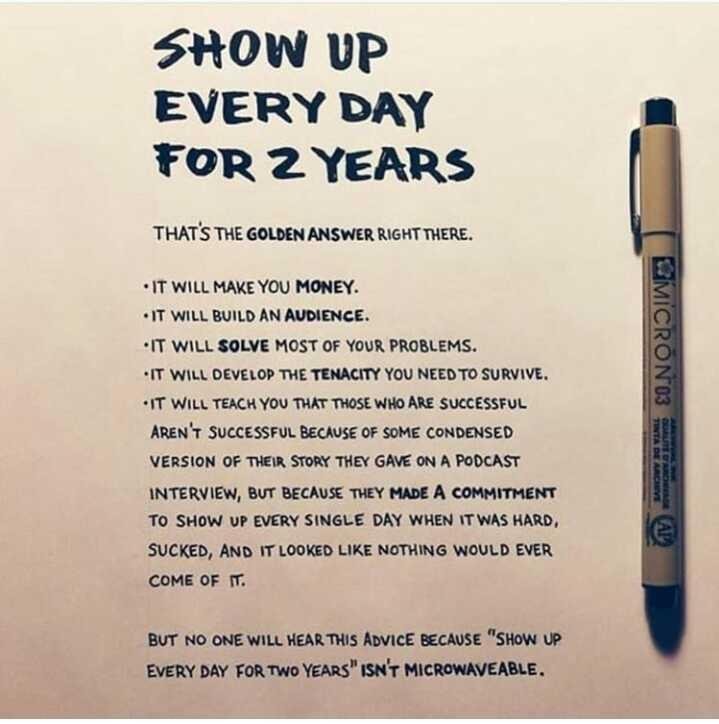 SHOW UP
EVERY DAY
FOR 2 YEARS
THAT'S THE GOLDEN ANSWER RIGHT THERE.
• IT WILL MAKE YOU MONEY.
• IT WILL BUILD AN AUDIENCE.
• IT WILL SOLVE MOST OF YOUR PROBLEMS.
• IT WILL DEVELOP THE TENACITY YOU NEED TO SURVIVE.
• IT WILL TEACH YOU THAT THOSE WHO ARE SUCCESSFUL
AREN'T SUCCESSFUL BECAUSE OF SOME CONDENSED
VERSION OF THEIR STORY THEY GAVE ON A PODCAST
INTERVIEW, BUT BECAUSE THEY MADE A COMMITMENT
TO SHOW UP EVERY SINGLE DAY WHEN IT WAS HARD,
SUCKED, AND IT LOOKED LIKE NOTHING WOULD EVER
COME OF IT.
BUT NO ONE WILL HEAR THIS ADVICE BECAUSE "SHOW UP
EVERY DAY FOR TWO YEARS" ISN'T MICROWAVEABLE.
MICRON 03
ARCHIVAL INK
QUALITÉ D'ARCHIVAGE
TINTA DE ARCHIVO
AP